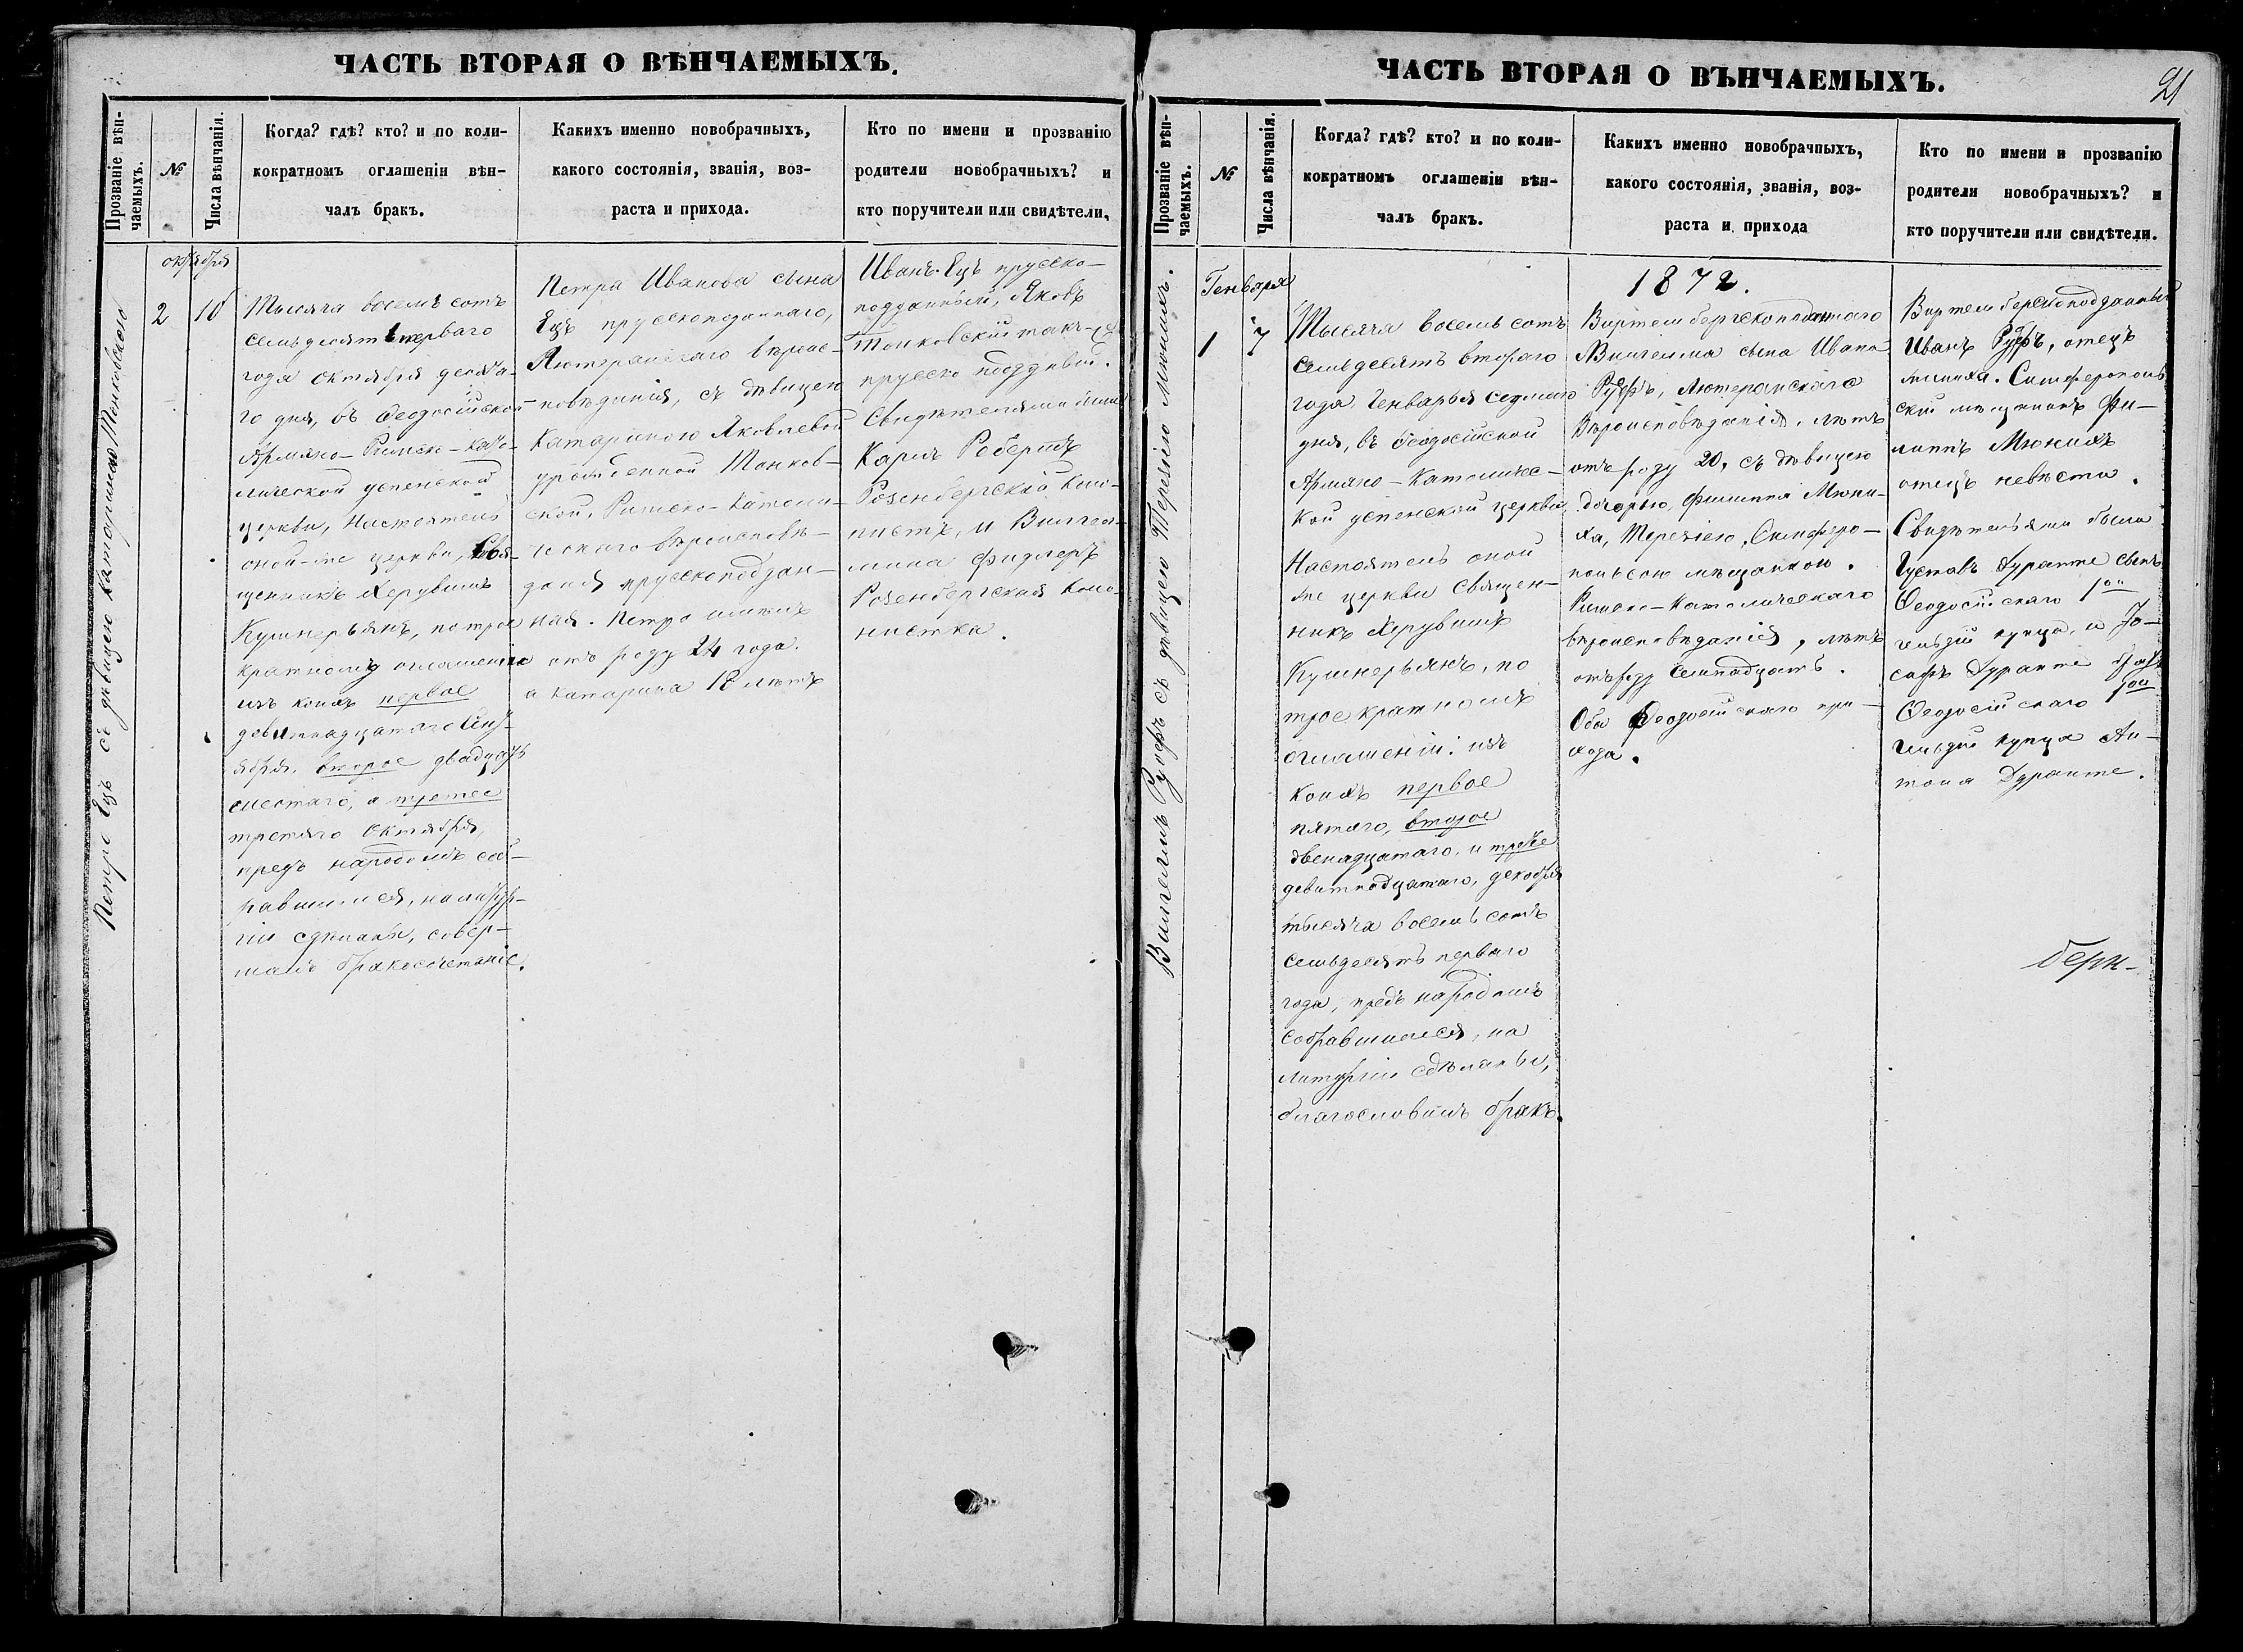 ЧАСТЬ ВТОРАЯ О ВѢНЧАЕМЫХЪ.
Прозваніе вѣн-
чаемыхъ.
№
Числа вѣнчанія.
Когда? гдѣ? кто? и по коли-
кократномъ оглашеніи вѣн-
чалъ бракъ.
Какихъ именно новобрачныхъ,
какого состоянія, званія, воз-
раста и прихода.
Кто по имени и прозванію
родители новобрачныхъ? и
кто поручители или свидѣтели.
Петръ Ецъ съ дѣвицею Катариною Тонковскою
октября
2
10
Тысяча восемь сотъ
семьдесятъ перваго
года октября десята-
го дня, въ Ѳеодосійской
Армяно-Римско-като-
лической успенской
церкви, Настоятель
оной-же церкви, Свя-
щенникъ Херувимъ
Кушнерьянъ, по трое
кратномъ оглашеніи
изъ коихъ первое
девятнадцатаго Сент-
ября, второе двадцать
шестаго, а третее
третяго Октября,
предъ народомъ соб-
равшимся, на литур-
гіи сдѣланы, совер-
шалъ бракосочетаніе.
Петра Иванова сына
Ецъ прусскоподаннаго,
Лютеранскаго вѣроис-
повѣданія, съ дѣвицею
Катариною Яковлевой
урожденной Тонков-
ской, Римско-Католи-
ческаго вѣроисповѣ-
данія прусскоподдан-
ная. Петро имѣлъ
отъ роду 24 года.
а Катарина 18 лѣтъ
Иванъ Ецъ прусско-
подданный, Яковъ
Тонковскій такъ-же
прусско поддный.
Свидѣтелями были
Карлъ Робертъ
Розенбергскій коло-
нистъ, и Вилгел-
мина Фидлеръ
Розенбергская коло-
нистка.
ЧАСТЬ ВТОРАЯ О ВѢНЧАЕМЫХЪ.
21
Прозваніе вѣн-
чаемыхъ.
№
Числа вѣнчанія.
Когда? гдѣ? кто? и по коли-
кократномъ оглашеніи вѣн-
чалъ бракъ.
Какихъ именно новобрачныхъ,
какого состоянія, званія, воз-
раста и прихода
Кто по имени и прозванію
родители новобрачныхъ? и
кто поручители или свидѣтели.
Вилгелмъ Руфъ съ дѣвицею Терезіею Мюнихъ.
Генваря
1
7
Тысяча восемь сотъ
семьдесятъ втораго
года, Генваря седмаго
дня, въ Ѳеодосійской
Армяно-Католичес-
кой успенской церкви,
Настоятель оной
же церкви Священ-
никъ Херувимъ
Кушнерьянъ, по
троекратномъ
оглашеніи: изъ
коихъ первое
пятаго, второе
двенадцатаго, и третее
девятнадцатаго, декабря
тысяча восемь сотъ
семьдесятъ перваго
года, предъ народомъ
собравшимся, на
литургіи сдѣланы,
благословилъ бракъ.
1872.
Виртембергскоподаннаго
Вилгелма сына Ивана
Руфъ, Лютеранскаго
Вѣроисповѣданія, лѣтъ
отъ роду 20, съ дѣвицею
дочерью Филиппа Мюни-
ха, Терезіею, Симферо-
польскою мѣщанкою.
Римско-Католическаго
вѣроисповѣданія, лѣтъ
отъ роду семнадцать.
Оба Ѳеодосійскаго при-
хода.
Виртембергскоподданный
Иванъ Руфъ, отецъ
жениха. Симферополь
скій мѣщанинъ Фи-
липпъ Мюнихъ
отецъ невѣсты.
Свидѣтелями были
Густавъ Дуранте сынъ
Ѳеодосійскаго 1ой
гильдіи купца, и Іо-
сифъ Дуранте братъ
Ѳеодосійскаго 1ой
гильдіи купца Ан-
тона Дуранте.